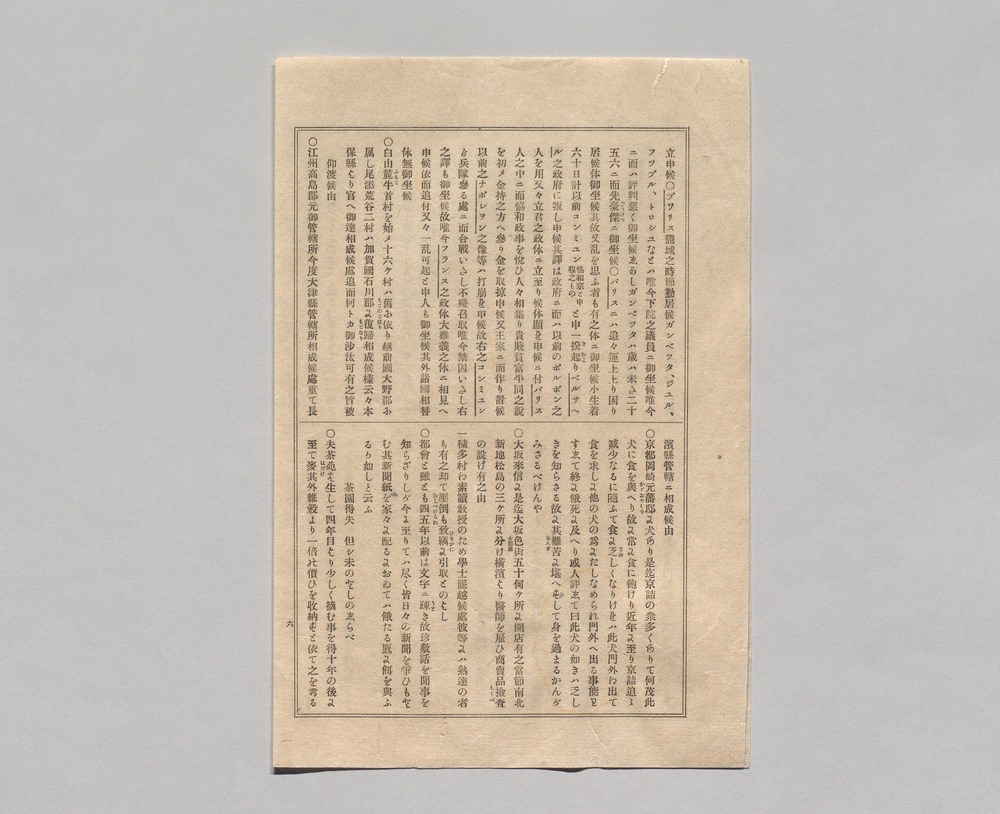 立申候〇プワリス籠城之時節勤居候ガンベツタ、ジエル、
フワブル、トロシユなとハ唯今下院之議員ニ御坐候唯今
ニ而ハ評判悪く御坐候ゑるしガンベツタハ歳ハ未さ二十
五六ニ而先豪傑ニ御坐候〇パリスニハ追々運上上り困り
居候体御坐候其故又乱を思ふ者も有之体ニ御坐候小生着
六十日計以前コンミユン協和宗と申程之ものと申一揆起りベルサヘ
ル之政府に叛し申候其譯は政府ニ而ハ以前のボルボン之
人を用又々立君之政体ニ立至り候休顯を申候ニ付パリス
人之中ニ而協和政事を悅ひ人々相集り貴賤貧富平同之説
を初メ金持之方へ參り金を取掠申候又王家ニ而作り置候
以前之ナポレヲン之像等ハ打崩を申候故右之コンミユン
ゟ兵隊參る處ニ而合戰いさし不殘召取唯今禁因いさし右
之譯も御坐候故唯今フランス之政体大難義之休ニ相見へ
申候依而追付又々一乱可起と申人も御坐候其外諸國相替
休無御坐候
〇白山麓牛首村を始メ十六ケ村ハ舊ゟ依り越前國大野郡ゟ
属し尾添荒谷二村ハ加賀國石川郡よ復歸相成候樣云々本
保縣より官へ御達相成候處追而何トカ御沙汰可有之旨被
仰渡候由
〇江州高島郡元御管轄所今度大津縣管轄所相成候處重て長
濱縣管轄ニ相成候由
〇京都岡崎元藩邸よ犬あり是迄京詰の衆多くありて何茂此
犬に食を與へり故よ常よ食に飽けり近年よ至り京詰追々
減少なるに隨ふて食よ乏しくなりけをハ此犬門外ゟ出て
食を求しよ他の犬の爲よたしなめられ門外へ出る事能を
すゑて終よ餓死よ及へり或人評ゑて曰此犬の如きハ乏し
きを知らさる故よ其難苦よ堪へをして身を過まるかんガ
みさるべけんや
〇大坂來信よ是迄大坂色街五十何ケ所よ開店有之當節南北
新地松島の三ケ所よ分け横濱より醫師を雇ひ商賣品撿査
の設け有之由
一穢多村ゟ素讀敎授のため學士罷越候處彼等よハ熟達の者
も有之却て壓倒も致蹶よ引取とのとし
〇都會と雖とも四五年以前は文字ニ疎き故珍敷話を聞事を
知らざりしガ今よ至りてハ尽く皆日々の新聞を爭ひもせ
む其新聞紙を家々よ配るよおゐてハ餓たる鷹よ餌を與ふ
るり如しと云ふ
茶園得失　但シ未のせしのゑらべ
〇夫茶麁を生して四年目より少しく摘む事を得十年の後よ
至て麥其外雜穀より一倍せ價ひを收納をと依て之を考る
六